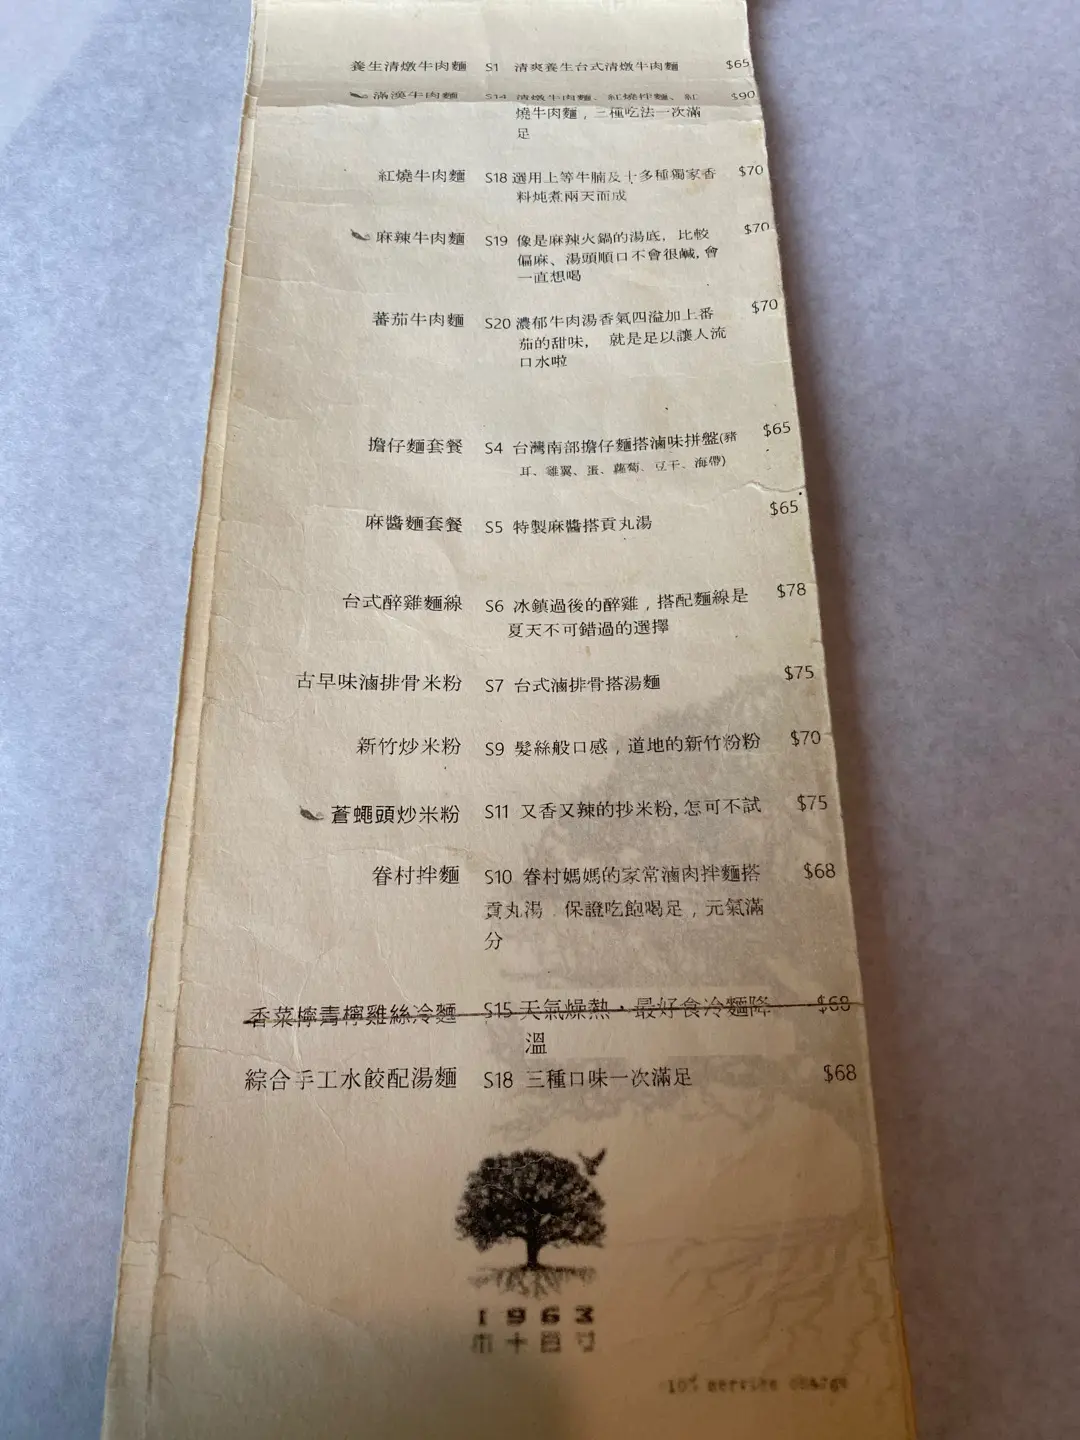 養生清燉牛肉麵 S1 清爽養生台式清燉牛肉麵 $65
滿漢牛肉麵 S14 清燉牛肉麵、紅燒拌麵、紅 $90
燒牛肉麵，三種吃法一次滿
足
紅燒牛肉麵 S18 選用上等牛腩及十多種獨家香 $70
料炖煮兩天而成
麻辣牛肉麵 S19 像是麻辣火鍋的湯底，比較 $70
偏麻、湯頭順口不會很鹹,會
一直想喝
蕃茄牛肉麵 S20 濃郁牛肉湯香氣四溢加上番 $70
茄的甜味， 就是足以讓人流
口水啦
擔仔麵套餐 S4 台灣南部擔仔麵搭滷味拼盤(豬 $65
耳、雞翼、蛋、蘿蔔、豆干、海帶)
麻醬麵套餐 S5 特製麻醬搭貢丸湯 $65
台式醉雞麵線 S6 冰鎮過後的醉雞，搭配麵線是 $78
夏天不可錯過的選擇
古早味滷排骨米粉 S7 台式滷排骨搭湯麵 $75
新竹炒米粉 S9 髮絲般口感，道地的新竹粉粉 $70
蒼蠅頭炒米粉 S11 又香又辣的抄米粉,怎可不試 $75
眷村拌麵 S10 眷村媽媽的家常滷肉拌麵搭 $68
貢丸湯 保證吃飽喝足，元氣滿
分
香菜檸青檸雞絲冷麵 S15 天氣燥熱，最好食冷麵降 $68
溫
綜合手工水餃配湯麵 S18 三種口味一次滿足 $68
1963
10% service charge